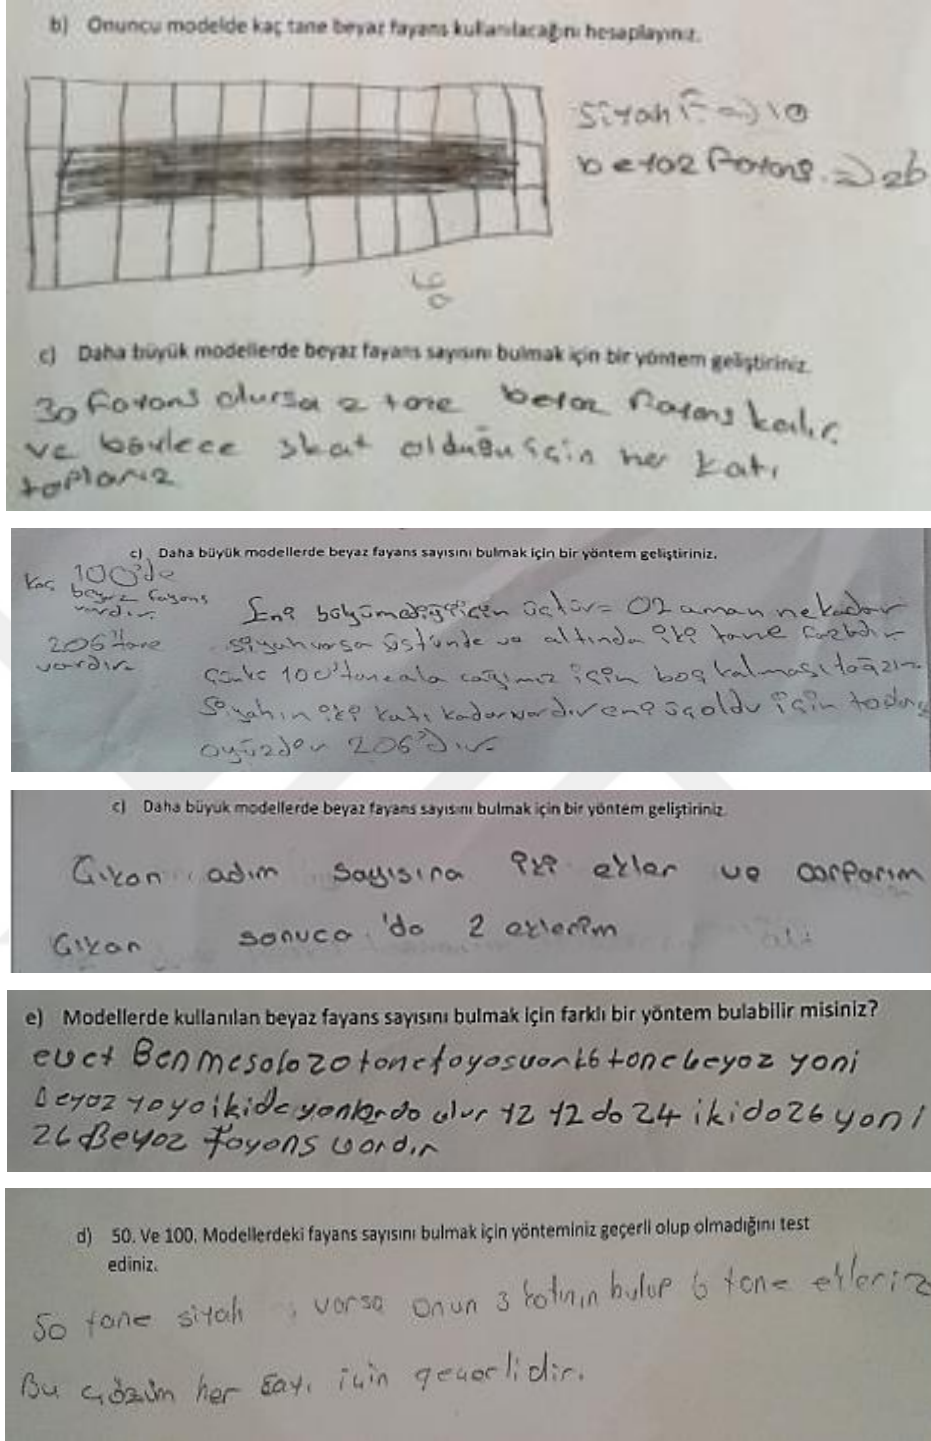 b) Onuncu modelde kaç tane beyaz fayans kullanılacağını hesaplayınız.
Siyah F. => 10
beyaz Fayans. => 26
c) Daha büyük modellerde beyaz fayans sayısını bulmak için bir yöntem geliştiriniz.
30 fayans olursa 2 tane beyaz fayans kalır.
ve böylece 3kat olduğu için her katı
toplarız
c) Daha büyük modellerde beyaz fayans sayısını bulmak için bir yöntem geliştiriniz.
100'de
Kaç beyaz fayans
vardır.
206 tane
vardır.
Eni büyümediği için üçtür= O zaman ne kadar
siyah varsa üstünde ve altında iki tane fazladır
Çünkü 100'tane ala cağımız için boş kalması lazım.
Siyahın iki katı kadar vardır eni üç oldu için
oyüzden 206'dır.
c) Daha büyük modellerde beyaz fayans sayısını bulmak için bir yöntem geliştiriniz.
Çıkan adım sayısına iki ekler ve çarparım
Çıkan sonuca 'da 2 eklerim
e) Modellerde kullanılan beyaz fayans sayısını bulmak için farklı bir yöntem bulabilir misiniz?
evet Ben mesala 10 tane fayas var 26 tane beyaz yani
Beyaz yanlarda olur 12 12 da 24 iki da 26 yani
26 Beyaz fayans vardır
d) 50. Ve 100. Modellerdeki fayans sayısını bulmak için yönteminiz geçerli olup olmadığını test
ediniz.
50 tane siyah varsa onun 3 katının bulup 6 tane ekleriz
Bu çözüm her sayı için geçerlidir.